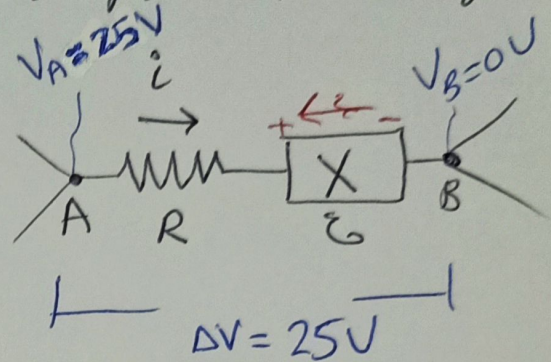 VA=25V
i
VB=0V
+ - 
X
A
R
B
ΔV = 25V